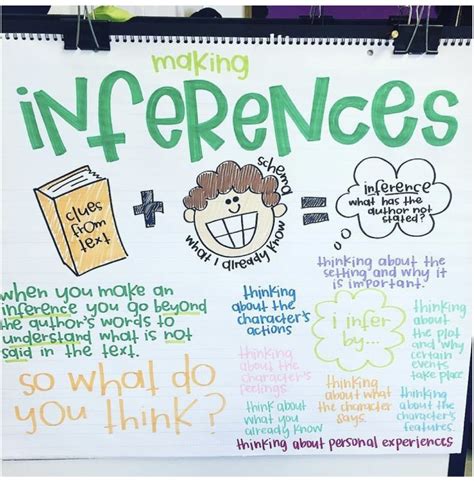 making
inferences
clues
from
text
+
schema
what I already know
=
inference
what has the
author not
stated?
when you make an
inference you go beyond
the author's words to
understand what is not
said in the text.
so what do
you think?
thinking about the
setting and why it
is important.
thinking
about the
character's
actions
i infer
by...
thinking
about
the plot
and why
certain
events
take place
thinking
about the
character's
feelings
thinking
about what
the character
says.
thinking
about the
character's
features.
think about
what you
already know
thinking about personal experiences